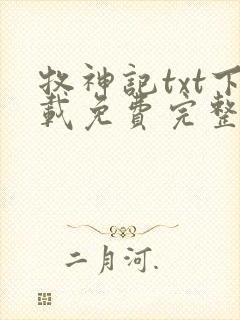 牧神記txt下
載免費完整
二月河.